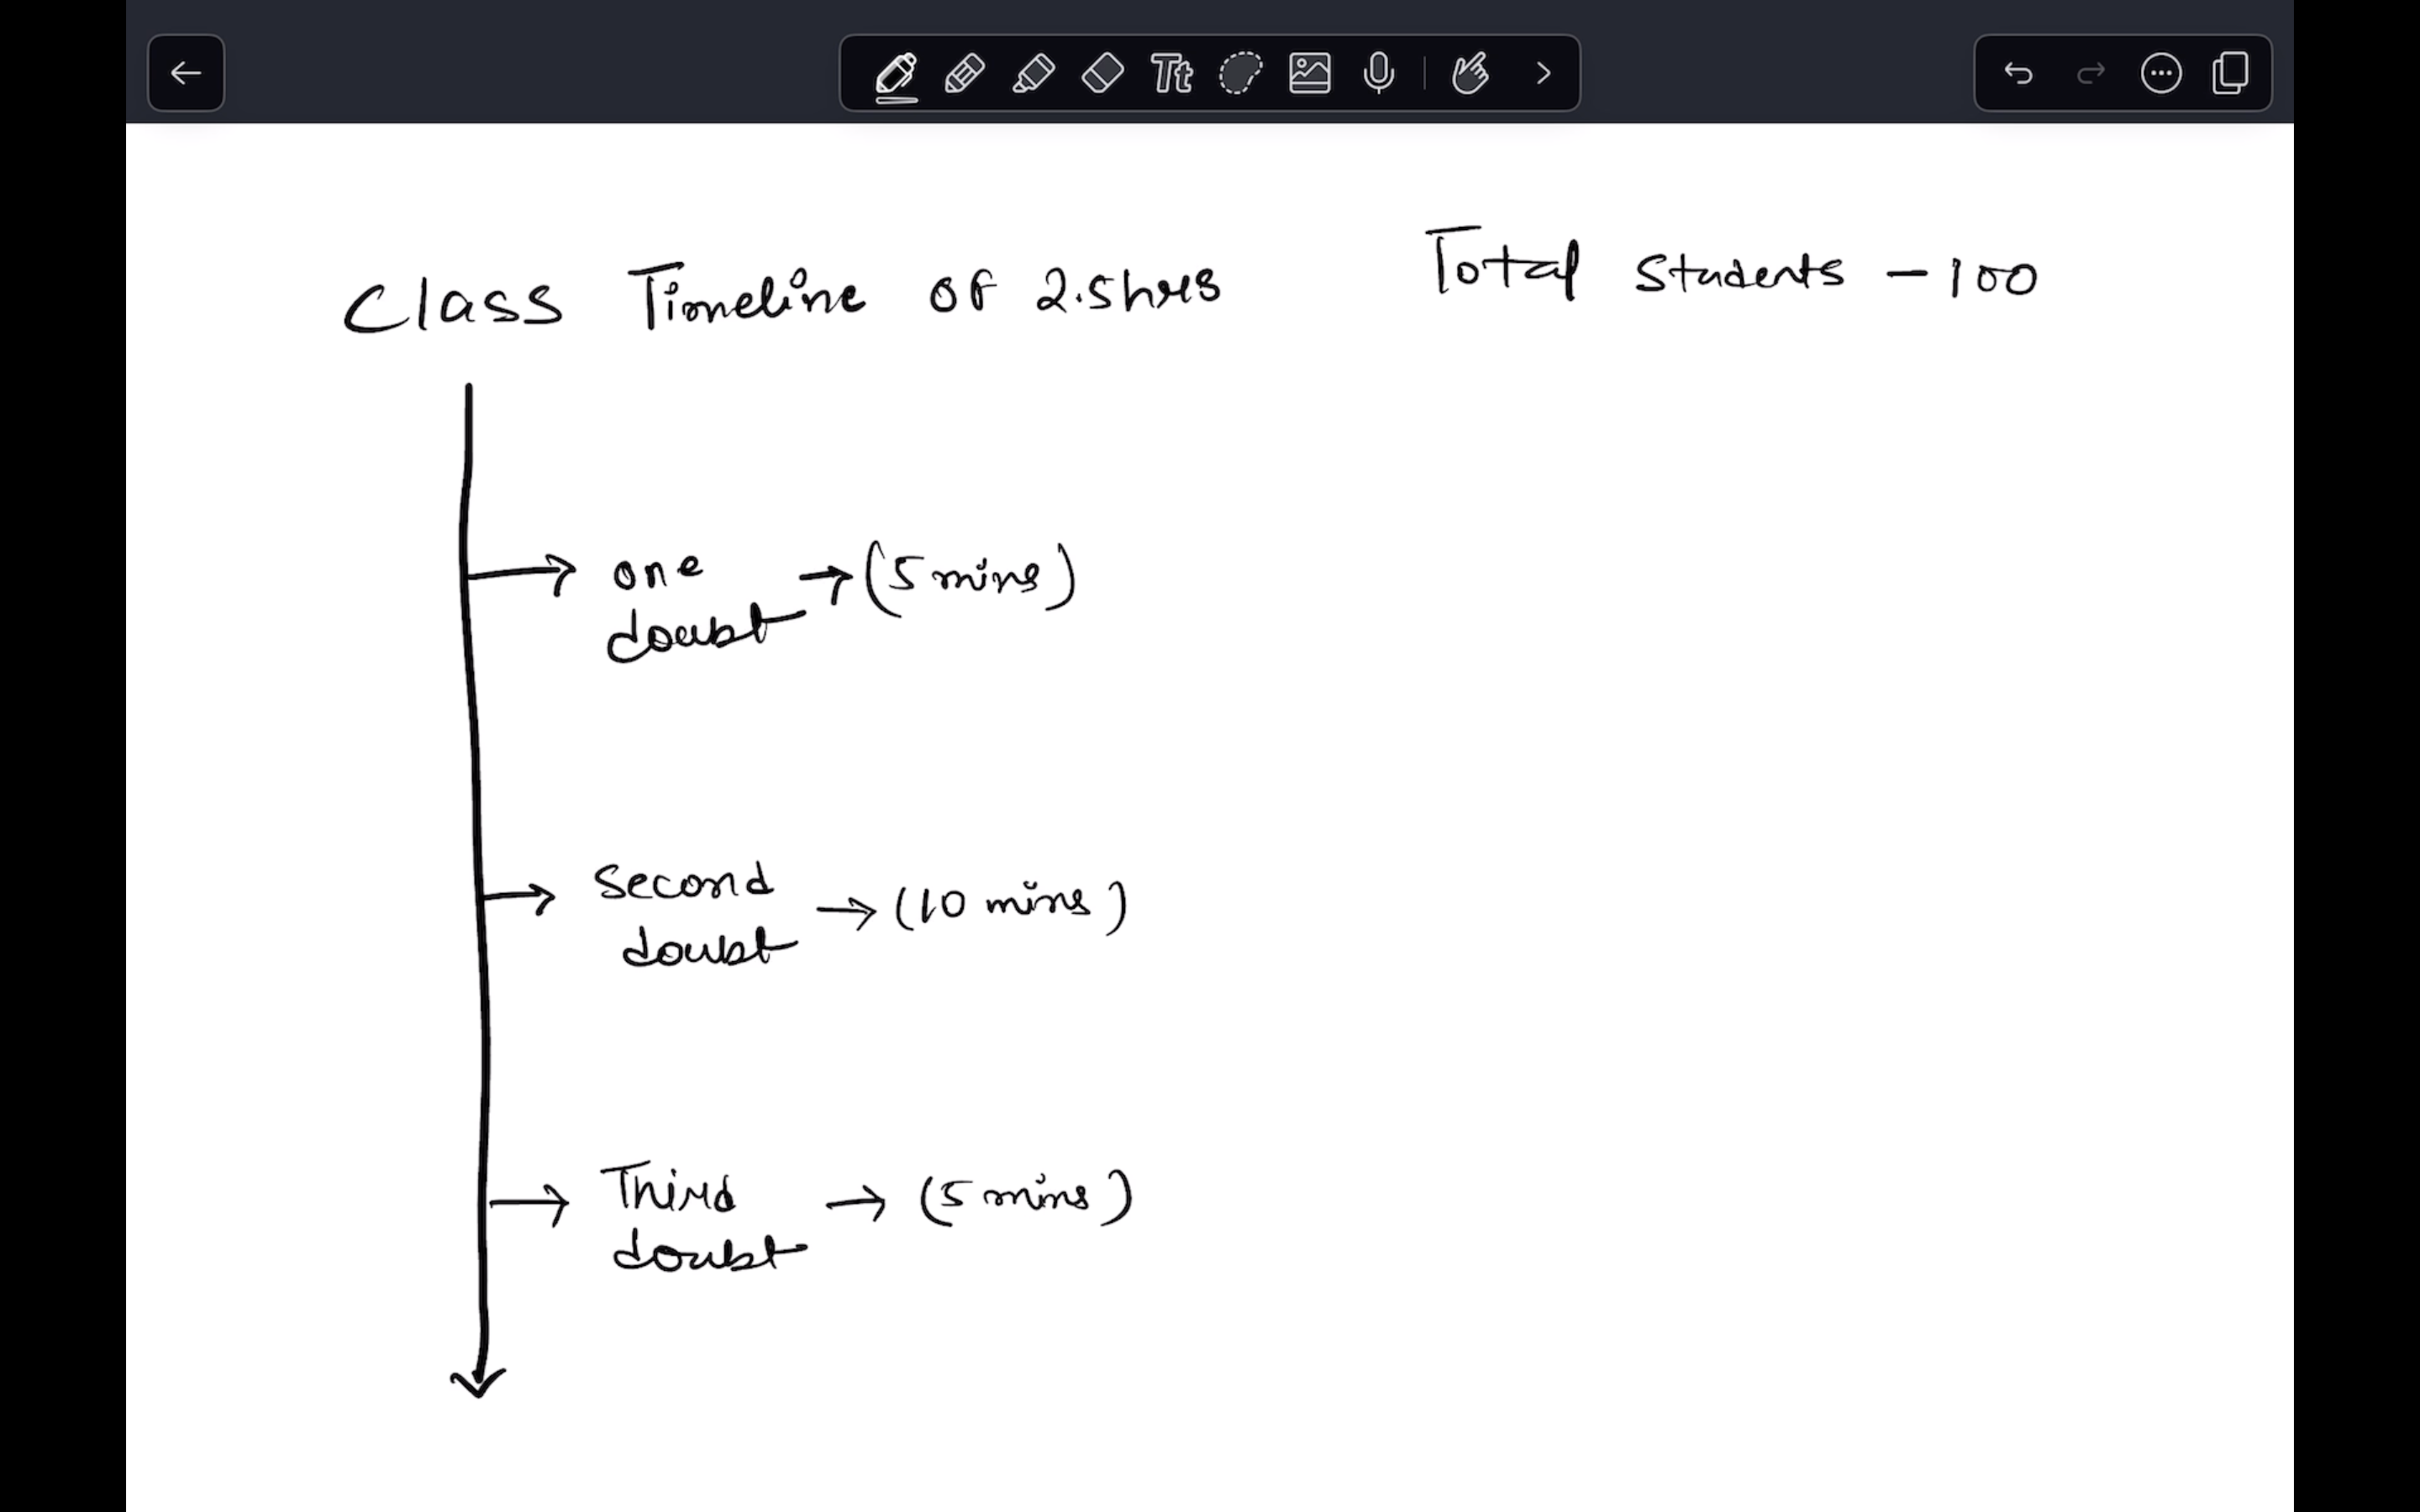 Class Timeline of 2.5hrs
Total Students - 100
one doubt → (5 mins)
Second doubt → (10 mins)
Third doubt → (5 mins)